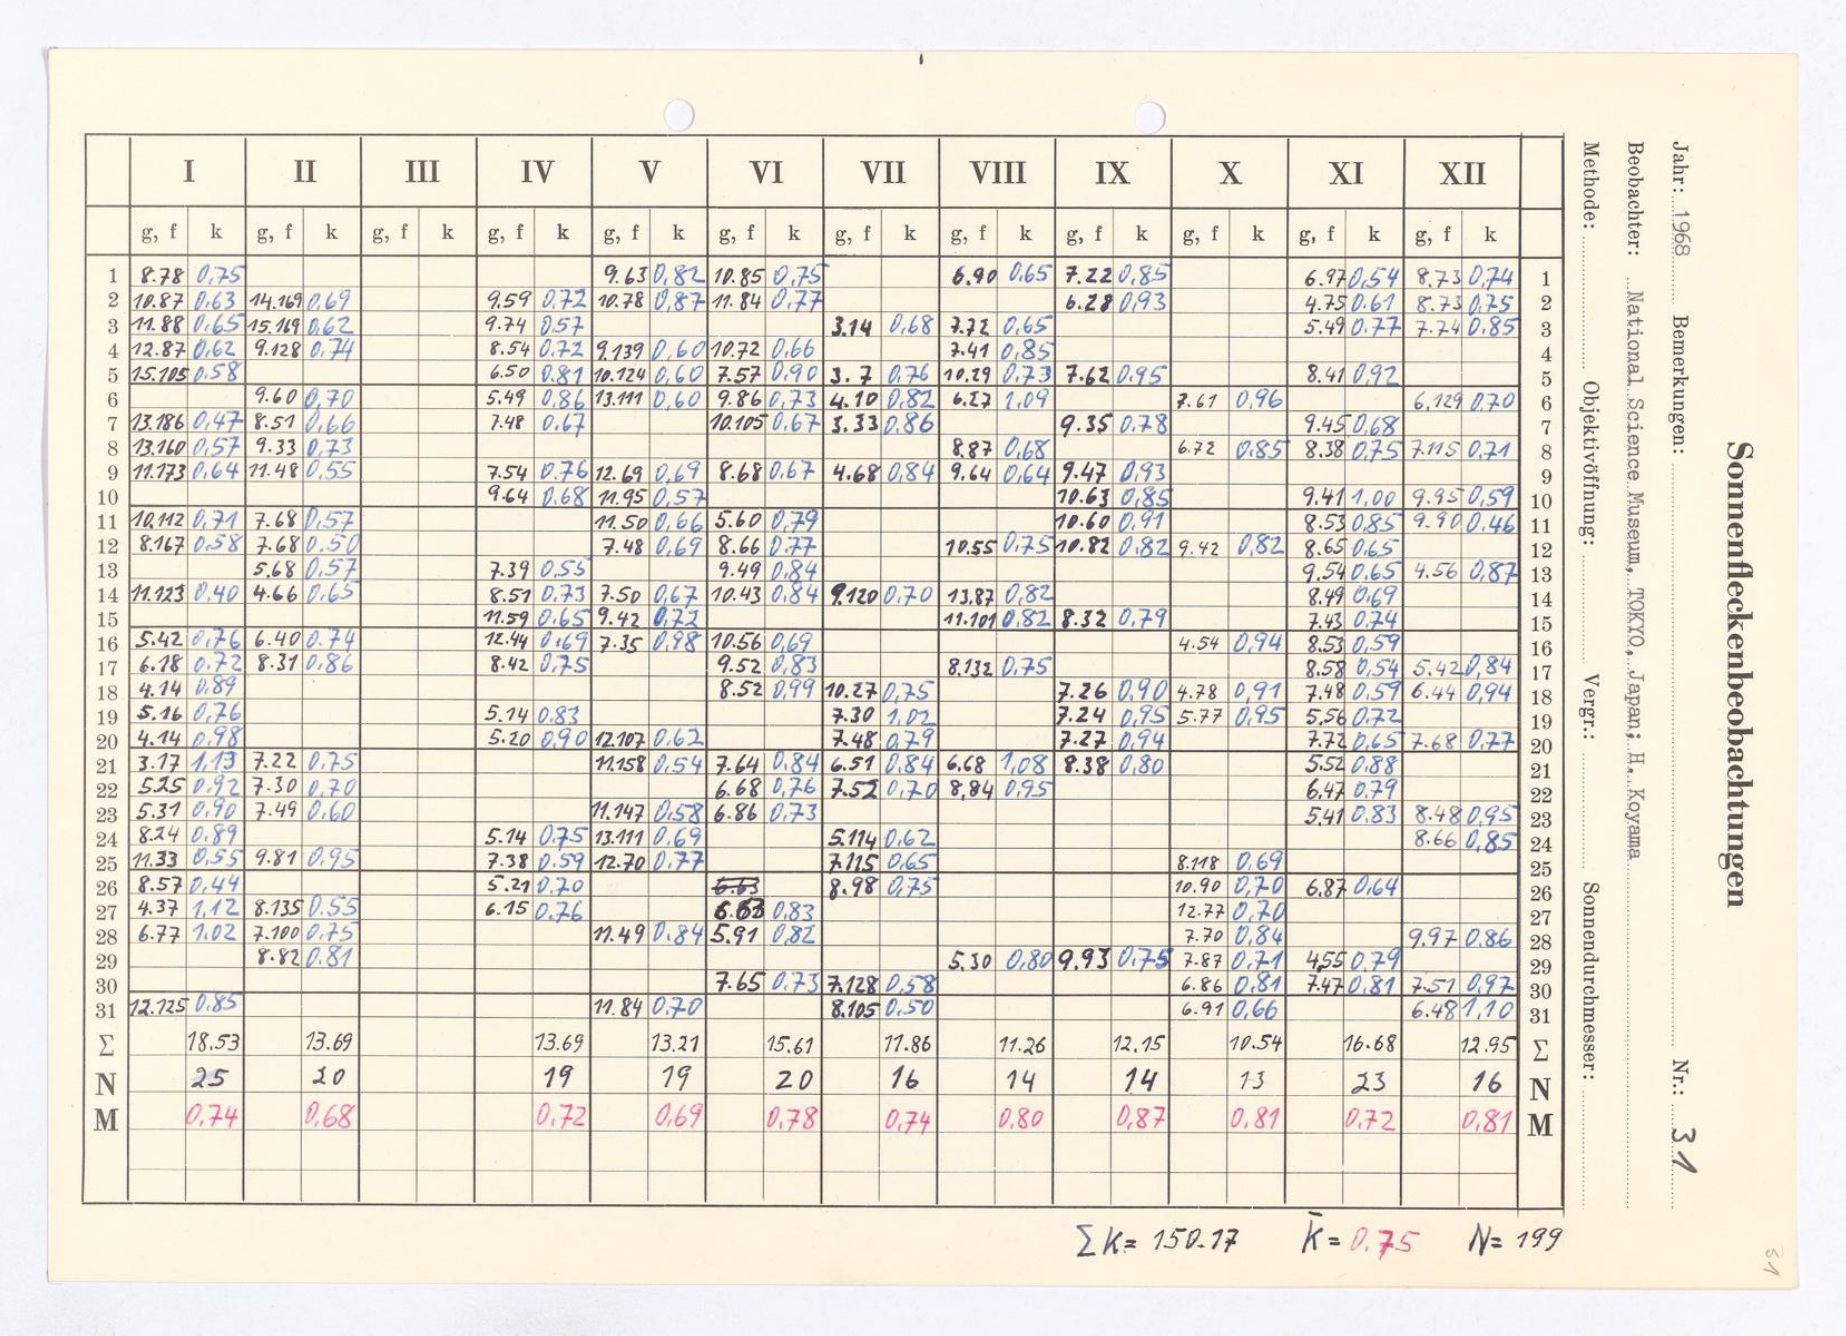 Sonnenfleckenbeobachtungen
Jahr: 1968 Bemerkungen: Nr.: 31
Beobachter: National Science Museum, TOKYO, Japan; H. Koyama
Methode: Objektivöffnung: Vergr.: Sonnendurchmesser:
I II III IV V VI VII VIII IX X XI XII
g, f k g, f k g, f k g, f k g, f k g, f k g, f k g, f k g, f k g, f k g, f k g, f k
1 8.78 0,75 9.63 0,82 10.85 0,75 6.90 0.65 7.22 0,85 6.97 0,54 8.73 0,74 1
2 10.87 0.63 14.169 0.69 9.59 0.72 10.78 0,87 11.84 0,77 6.28 0,93 4.75 0.61 8.73 0,75 2
3 11.88 0,65 15.169 0,62 9.74 0.57 3.14 0,68 7.72 0,65 5.49 0.77 7.74 0,85 3
4 12.87 0,62 9.128 0,74 8.54 0.72 9.139 0,60 10.72 0,66 7.41 0,85 4
5 15.105 0.58 6.50 0.81 10.124 0,60 7.57 0,90 3.7 0,76 10.29 0,73 7.62 0.95 8.41 0,92 5
6 9.60 0,70 5.49 0,86 13.111 0,60 9.86 0,73 4.10 0,82 6.27 1,09 7.61 0,96 6.129 0.70 6
7 13.186 0,47 8.51 0,66 7.48 0,67 10.105 0,67 3.33 0,86 9.35 0.78 9.45 0,68 7
8 13.160 0,57 9.33 0,73 8.87 0,68 6.72 0,85 8.38 0,75 7.115 0,71 8
9 11.173 0,64 11.48 0,55 7.54 0.76 12.69 0,69 8.68 0,67 4.68 0,84 9.64 0,64 9.47 0,93 9
10 9.64 0.68 11.95 0,57 10.63 0,85 9.41 1,00 9.95 0,59 10
11 10.112 0,71 7.68 0,57 11.50 0,66 5.60 0,79 10.60 0,91 8.53 0,85 9.90 0.46 11
12 8.167 0.58 7.68 0.50 7.48 0,69 8.66 0.77 10.55 0,75 10.82 0,82 9.42 0,82 8.65 0.65 12
13 5.68 0,57 7.39 0,55 9.49 0,84 9.54 0.65 4.56 0,87 13
14 11.123 0,40 4.66 0,65 8.51 0.73 7.50 0,67 10.43 0,84 9.120 0,70 13.87 0,82 8.49 0,69 14
15 11.59 0,65 9.42 0,72 11.101 0,82 8.32 0,79 7.43 0,74 15
16 5.42 0,76 6.40 0.74 12.44 0.69 7.35 0,98 10.56 0,69 4.54 0,94 8.53 0,59 16
17 6.18 0.72 8.31 0,86 8.42 0,75 9.52 0,83 8.132 0,75 8.58 0,54 5.42 0,84 17
18 4.14 0,89 8.52 0,99 10.27 0,75 7.26 0,90 4.78 0,91 7.48 0,59 6.44 0,94 18
19 5.16 0,76 5.14 0.83 7.30 1,02 7.24 0,95 5.77 0,95 5.56 0.72 19
20 4.14 0,98 5.20 0,90 12.107 0.62 7.48 0,79 7.27 0,94 7.72 0,65 7.68 0,77 20
21 3.17 1,13 7.22 0,75 11.158 0,54 7.64 0,84 6.51 0,84 6.68 1,08 8.38 0,80 5.52 0.88 21
22 5.25 0,92 7.30 0,70 6.68 0,76 7.52 0,70 8,84 0,95 6.47 0.79 22
23 5.31 0,90 7.49 0,60 11.147 0,58 6.86 0,73 5.41 0.83 8.48 0,95 23
24 8.24 0,89 5.14 0,75 13.111 0,69 5.114 0,62 8.66 0,85 24
25 11.33 0,55 9.81 0,95 7.38 0.59 12.70 0,77 7.115 0,65 8.118 0,69 25
26 8.57 0,44 5.21 0.70 6.63 8.98 0,75 10.90 0,70 6.87 0,64 26
27 4.37 1,12 8.135 0.55 6.15 0,76 6.63 0,83 12.77 0,70 27
28 6.77 1.02 7.100 0.75 11.49 0,84 5.91 0,82 7.70 0,84 9.97 0.86 28
29 8.82 0.81 5.30 0,80 9.93 0.75 7.87 0,71 4.55 0,79 29
30 7.65 0,73 7.128 0,58 6.86 0,81 7.47 0,81 7.51 0,97 30
31 12.125 0,85 11.84 0.70 8.105 0,50 6.91 0,66 6.48 1,10 31
Σ 18.53 13.69 13.69 13.21 15.61 11.86 11.26 12.15 10.54 16.68 12.95 Σ
N 25 20 19 19 20 16 14 14 13 23 16 N
M 0,74 0,68 0,72 0,69 0,78 0,74 0,80 0,87 0,81 0,72 0,81 M
Σk= 150.17 k̄= 0.75 N= 199
31